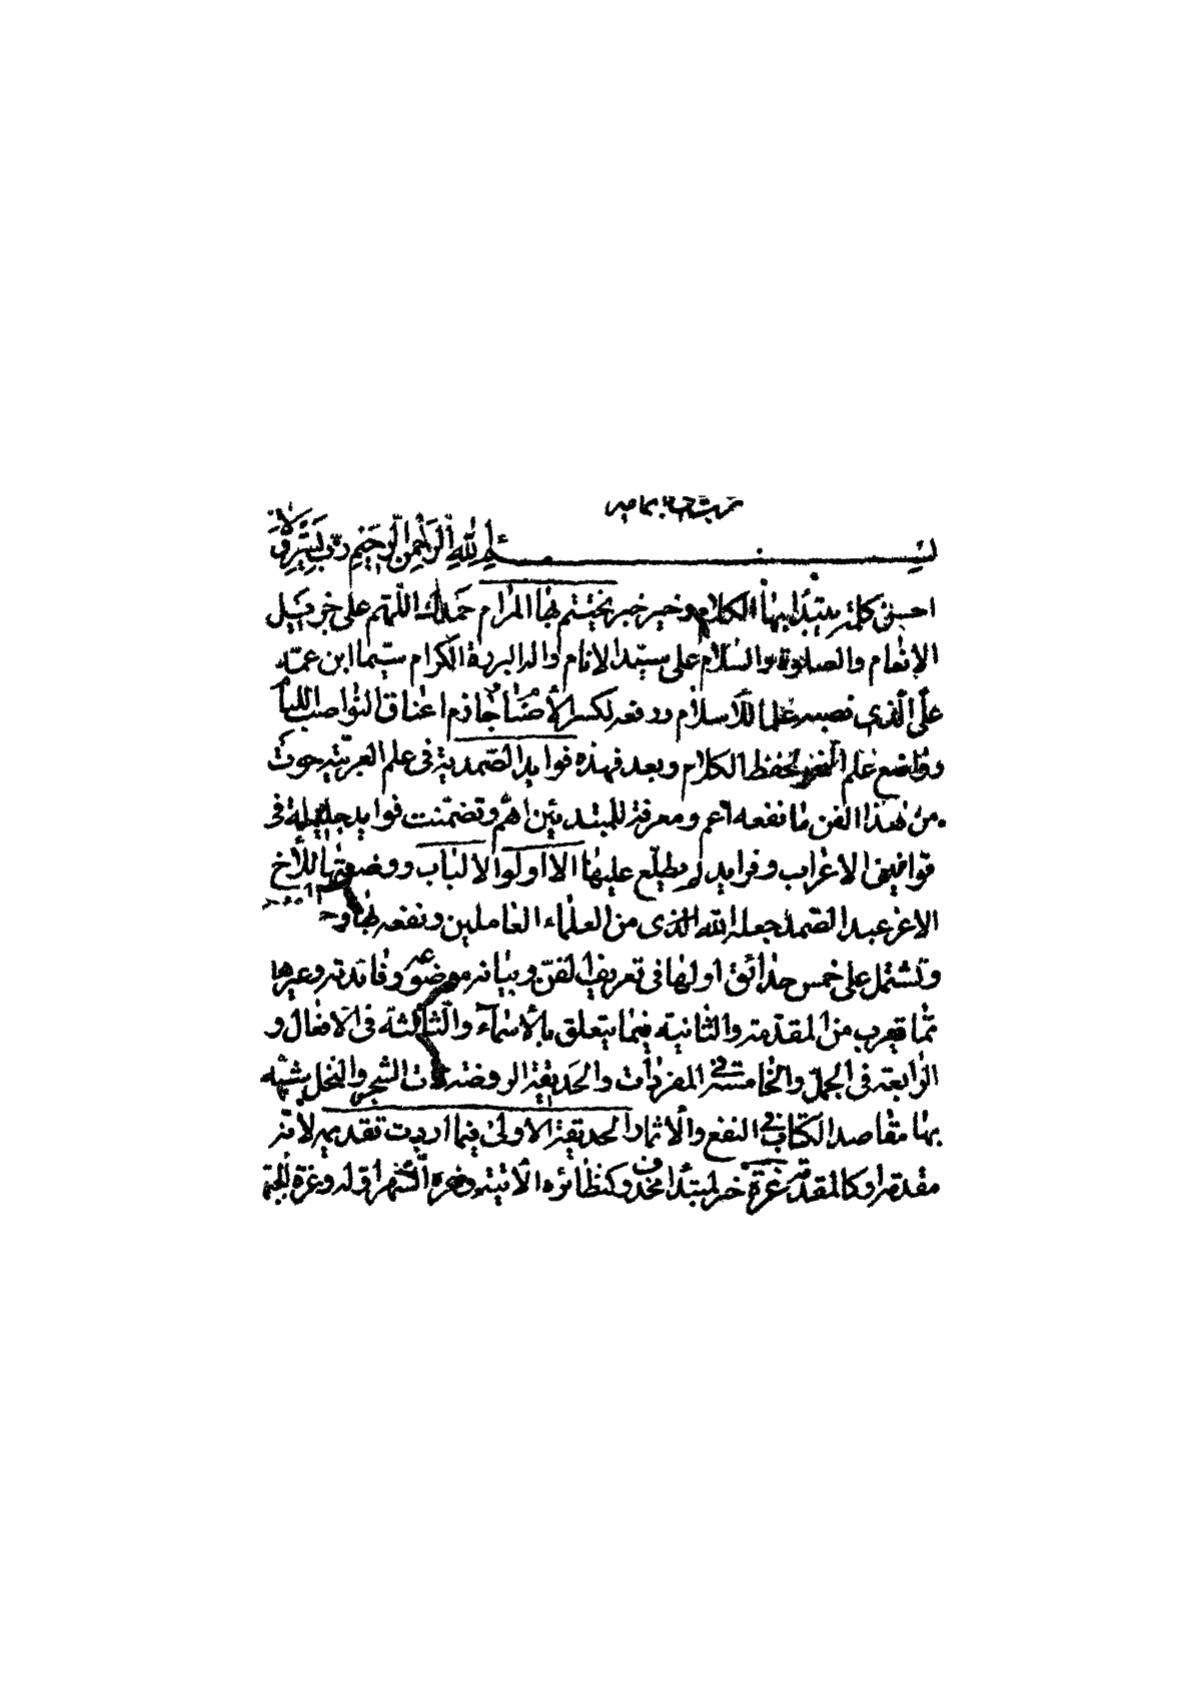 بسم الله الرحمن الرحيم رب يسر ولا
احسن كلمة يبتدأ بها الكلام وخير خبر يختتم بها المرام حمدك اللهم على جزيل
الانعام والصلوة والسلام على سيد الانام واله البررة الكرام سيما ابن عمه
على الذى نصبه علما للاسلام ورفعه لكسر الأصنام جازم اعناق النواصب اللئا
وواضع علم النحو لحفظ الكلام وبعد فهذه فوايد الصمدية فى علم العربية حوت
من هذا الفن ما نفعه اعم ومعرفة للمبتدئين اهم وتضمنت فوايد جليلة فى
قوانين الاعراب وفرايد لم يطلع عليها الا اولوا الالباب ووضعتها للأخ
الاعز عبد الصمد جعله الله الذى من العلماء العاملين ونفعه بها و
وتشتمل على خمس حدائق اولها فى تعريف الفن وبيانه موضوعه وفائدته وغيرها
مما يقرب من المقدمة والثانية فيما يتعلق بالأسماء والثالثة فى الافعال و
الرابعة فى الجمل والخامسة فى المفردات والحديقة الروضة ذات الشجر والنخل يشبه
بها مقاصد الكتاب فى النفع والاثمار الحديقة الاولى فيما اردت تقديمه لانه
مقدمة او كالمقدمة غرة خبر لمبتدأ محذوف كنظائره الآتية وغرة الشهر اوله وغرة الجبهة